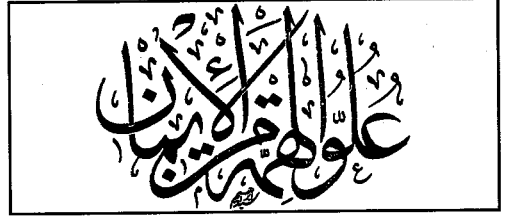 عُلُوُّ الهِمَّةِ مِنَ الإِيمَانِ